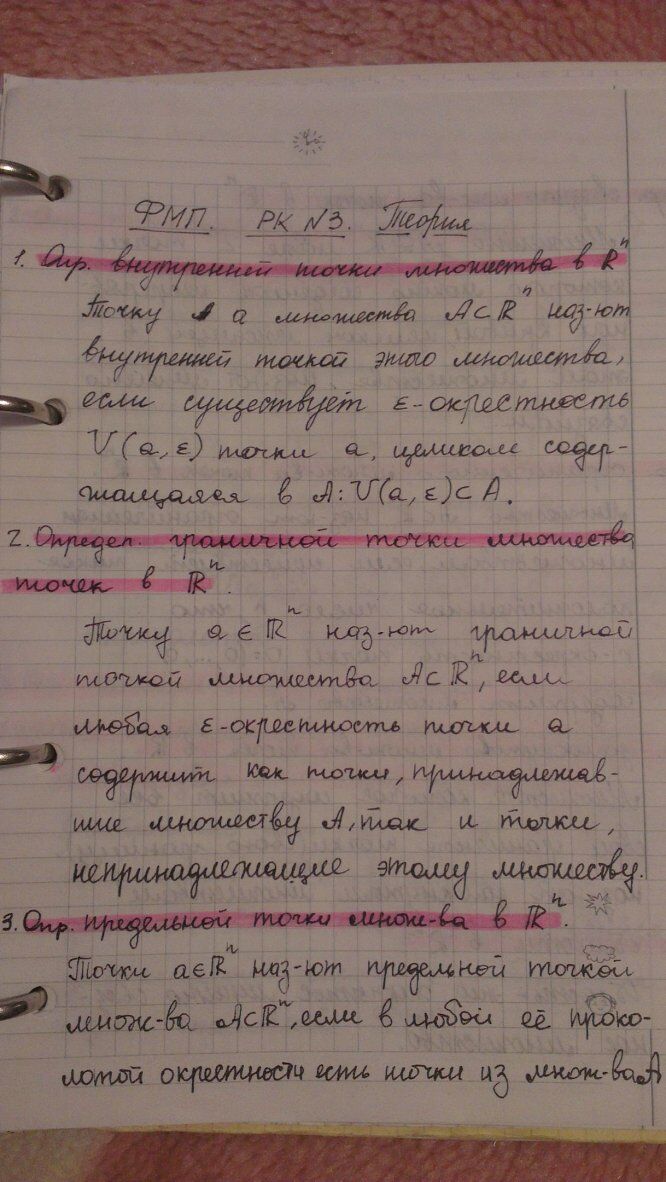 ФМП. РК №3. Теория
1. Опр. внутренней точки множества в ℝⁿ
Точку а множества А⊂ℝⁿ наз-ют
внутренней точкой этого множества,
если существует ε-окрестность
U(a, ε) точки а, целиком содер-
жащаяся в А: U(a, ε)⊂A.
2. Определ. граничной точки множества
точек в ℝⁿ.
Точку a∈ℝⁿ наз-ют граничной
точкой множества А⊂ℝⁿ, если
любая ε-окрестность точки а
содержит как точки, принадлежав-
шие множеству А, так и точки,
непринадлежащие этому множеству.
3. Опр. предельной точки множ-ва в ℝⁿ.
Точки a∈ℝⁿ наз-ют предельной точкой
множ-ва А⊂ℝⁿ, если в любой её проко-
лотой окрестности есть точки из множ-ва А